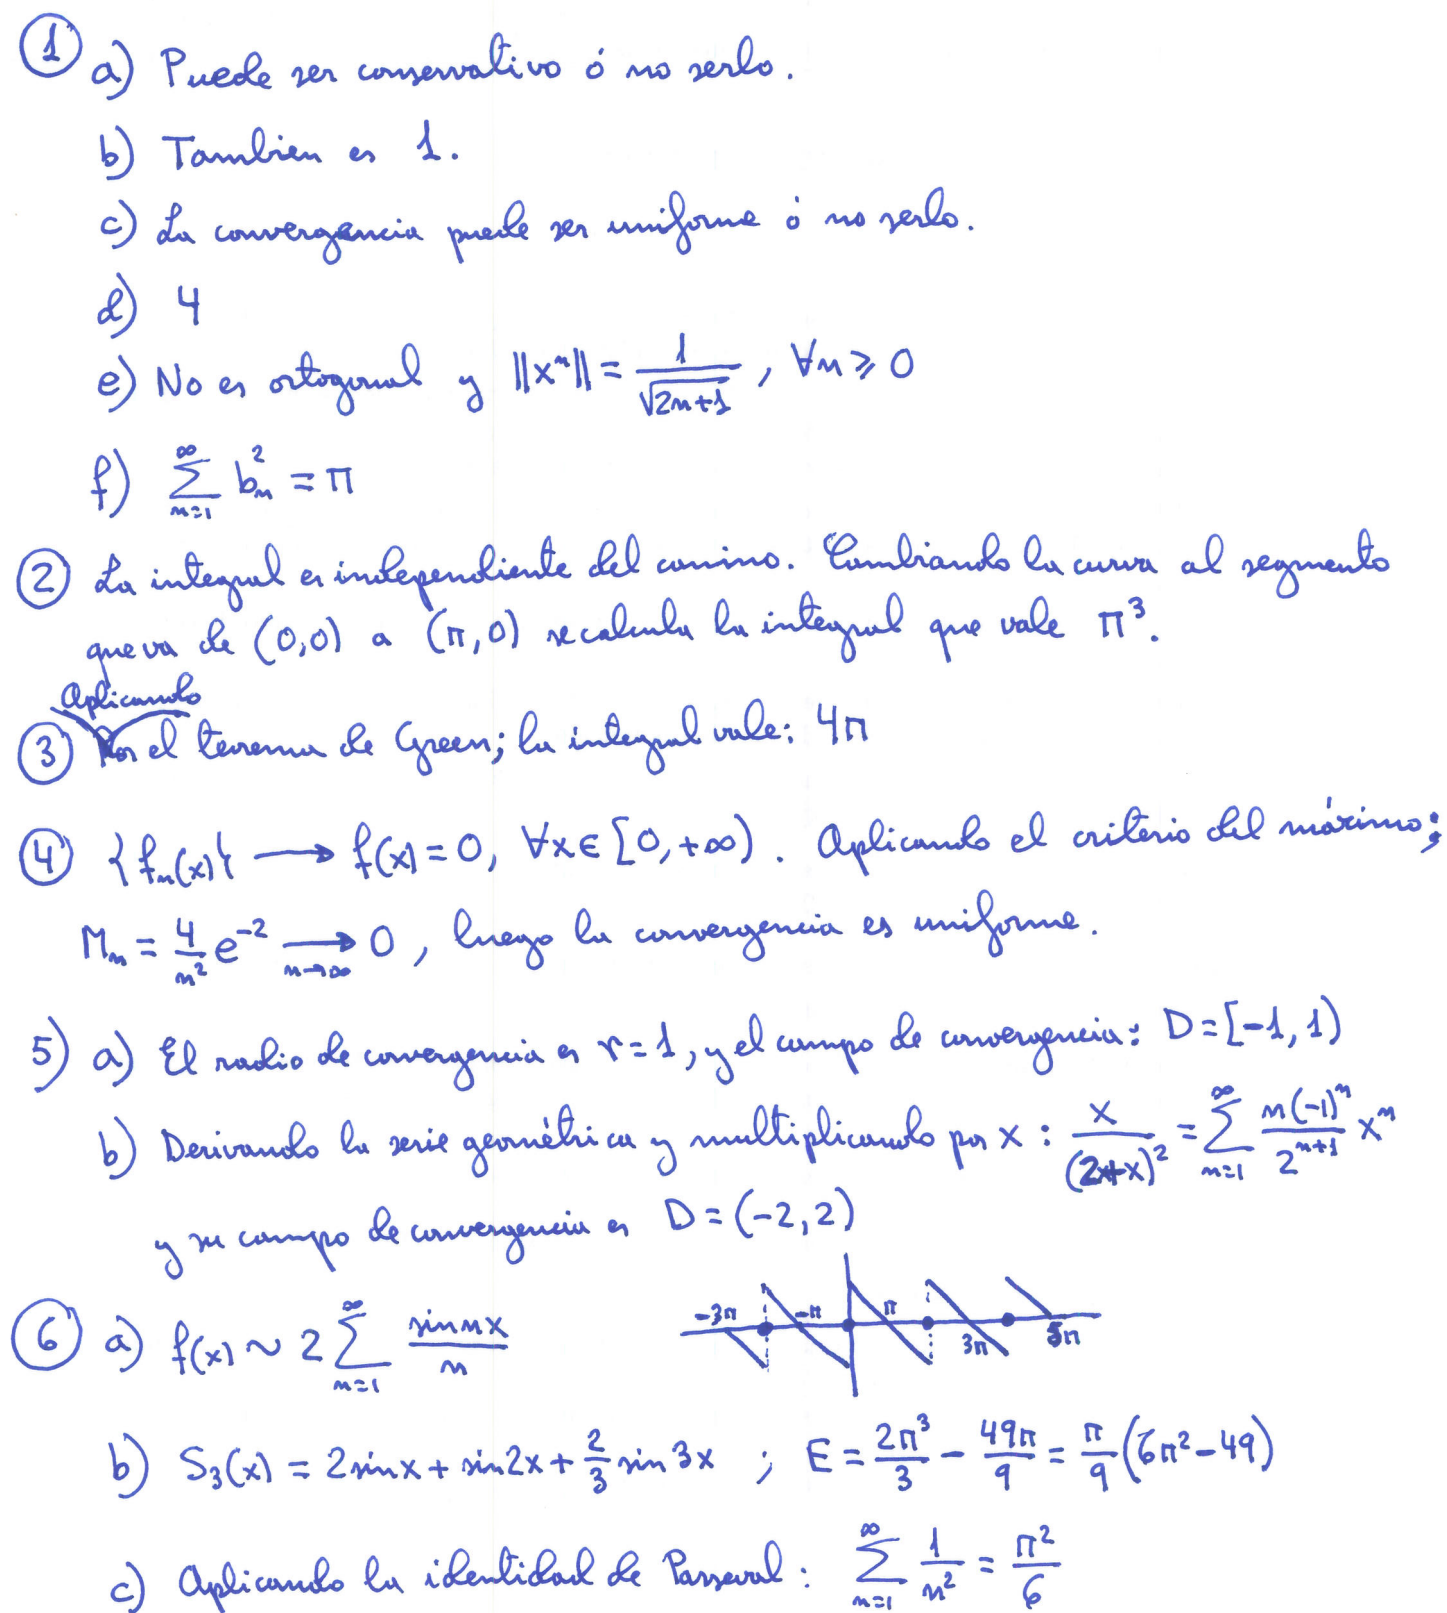 ① a) Puede ser conservativo ó no serlo.
b) Tambien es 1.
c) La convergencia puede ser uniforme ó no serlo.
d) 4
e) No es ortogonal y ||xⁿ|| = 1/√(2n+1), ∀n ≥ 0
f) ∑_{n=1}^{∞} b_n² = π
② La integral es independiente del camino. Cambiando la curva al segmento
que va de (0,0) a (π,0) se calcula la integral que vale π³.
Aplicando
③ el teorema de Green; la integral vale: 4π
④ {f_n(x)} → f(x) = 0, ∀x ∈ [0, +∞). Aplicando el criterio del máximo:
M_n = 4/n² e⁻² →_{n→∞} 0, luego la convergencia es uniforme.
5) a) El radio de convergencia es r=1, y el campo de convergencia: D = [-1, 1)
b) Derivando la serie geométrica y multiplicando por x: x/(2+x)² = ∑_{n=1}^{∞} n(-1)ⁿ/2ⁿ⁺¹ xⁿ
y su campo de convergencia es D = (-2, 2)
⑥ a) f(x) ~ 2 ∑_{n=1}^{∞} sin nx / n
-3π -π π 3π 5π
b) S₃(x) = 2 sin x + sin 2x + 2/3 sin 3x ; E = 2π³/3 - 49π/9 = π/9 (6π² - 49)
c) Aplicando la identidad de Parseval: ∑_{n=1}^{∞} 1/n² = π²/6